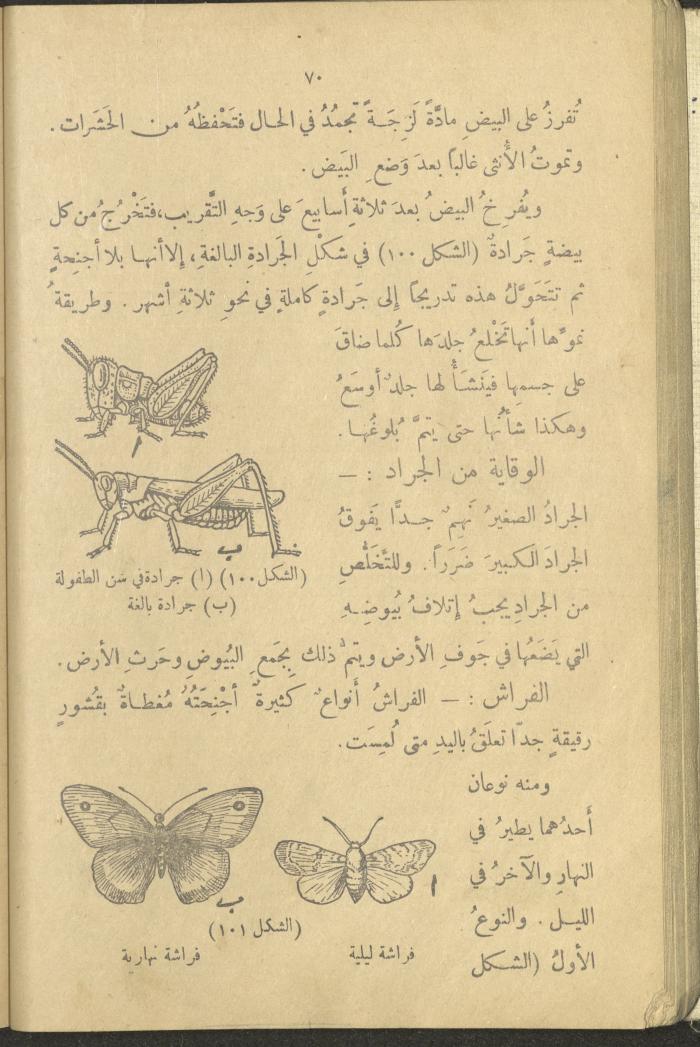 ٧٠
تُفرزُ على البيضِ مادَّةً لَزِجَــةً تَجمُدُ في الحـال فتَحْفظُهُ من الحَشَرات .
وتموتُ الأُنثى غالبًا بعدَ وَضعِ البَيض .
ويُفرِخُ البيضُ بعدَ ثلاثةِ أسابيعَ على وَجهِ التَّقريب، فتَخْرُجُ من كل
بيضةٍ جَرادةٌ (الشكل ١٠٠) في شكْلِ الجَرادةِ البالغةِ ، إلا أنهـا بلا أجنِحةٍ
ثم تتحَوَّلُ هذه تدريجًا إلى جَرادةٍ كاملةٍ في نحوِ ثلاثةِ أشهر . وطريقةُ
نموِّها أنها تَخْلعُ جلدَها كُلما ضاقَ
على جسمِها فيَنشَــأُ لها جلدٌ أوسَعُ
وهكذا شأنُها حتى يتمَّ بُلوغُهـا .
الوقاية من الجراد : —
الجرادُ الصغيرُ نَهِمٌ جــدًّا يَفوقُ
الجرادَ الكـبيرَ ضَرَرًا . وللتَّخَلُّصِ
من الجرادِ يجبُ إتلافُ بُيوضِــهِ
ا
ب
(الشكل ١٠٠) (ا) جرادة في سن الطفولة
(ب) جرادة بالغة
التي يَضَعُها في جَوفِ الأرض ويتمُّ ذلك بِجَمعِ البُيوضِ وحَرثِ الأرض .
الفراش : — الفراشُ أنواعٌ كثيرةٌ أجْنِحَتُهُ مُغطـاةٌ بقُشورٍ
رقيقةٍ جدًّا تعلَقُ باليدِ متى لُمِسَت .
ومنه نوعان
أَحدُهما يطيرُ في
النهارِ والآخرُ في
الليـل . والنوعُ
الأولُ (الشـكل
ا
ب
(الشكل ١٠١)
فراشة ليلية
فراشة نهارية